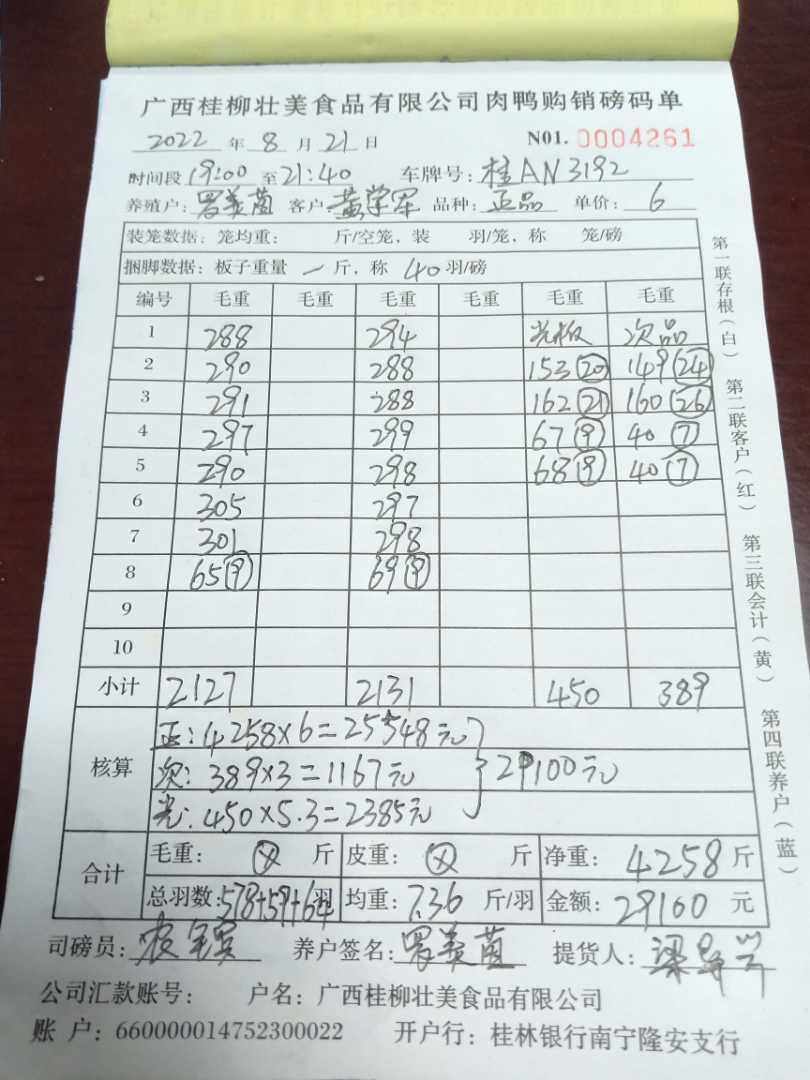 广西桂柳壮美食品有限公司肉鸭购销磅码单
2022 年 8 月 21 日 N01. 0004261
时间段 19:00 至 21:40 车牌号: 桂AN3192
养殖户: 罗美茵 客户 黄学军 品种: 正品 单价: 6
装笼数据: 笼均重: 斤/空笼, 装 羽/笼, 称 笼/磅
捆脚数据: 板子重量 一 斤, 称 40 羽/磅
编号 毛重 毛重 毛重 毛重 毛重 毛重
1 288 294 光板 次品
2 290 288 153(20) 149(24)
3 291 288 162(21) 160(26)
4 297 299 67(9) 40(7)
5 290 298 68(9) 40(7)
6 305 297
7 301 298
8 65(9) 69(9)
9
10
小计 2127 2131 450 389
核算
正: 4258×6=25548元
次: 389×3=1167元 } 29100元
光: 450×5.3=2385元
合计
毛重: 斤 皮重: 斤 净重: 4258 斤
总羽数: 578+59+64 羽 均重: 7.36 斤/羽 金额: 29100 元
司磅员: 养户签名: 罗美茵 提货人:
公司汇款账号: 户名: 广西桂柳壮美食品有限公司
账 户: 660000014752300022 开户行: 桂林银行南宁隆安支行
第一联存根(白) 第二联客户(红) 第三联会计(黄) 第四联养户(蓝)